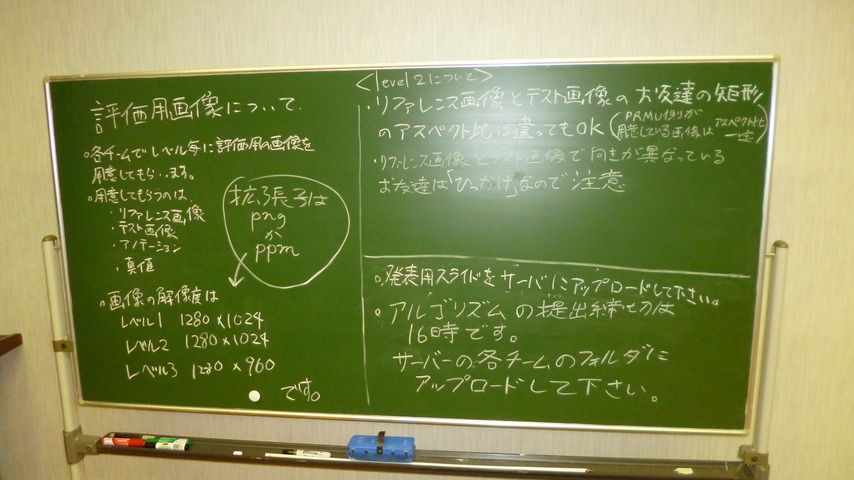 評価用画像について
○各チームでレベル毎に評価用の画像を
用意してもらいます。
○用意してもらうのは、
・リファレンス画像
・テスト画像
・アノテーション
・真値
拡張子は
png
か
ppm
○画像の解像度は
レベル1 1280×1024
レベル2 1280×1024
レベル3 1280×960
です。
<level2について>
・リファレンス画像とテスト画像のお友達の矩形
のアスペクト比は違ってもOK
(PRMU側が
用意している画像は アスペクト比
一定)
・リファレンス画像とテスト画像で向きが異なっている
お友達は「ひっかけ」なので注意
○発表用スライドをサーバにアップロードして下さい。
○アルゴリズムの提出締切は
16時です。
サーバーの各チームのフォルダに
アップロードして下さい。